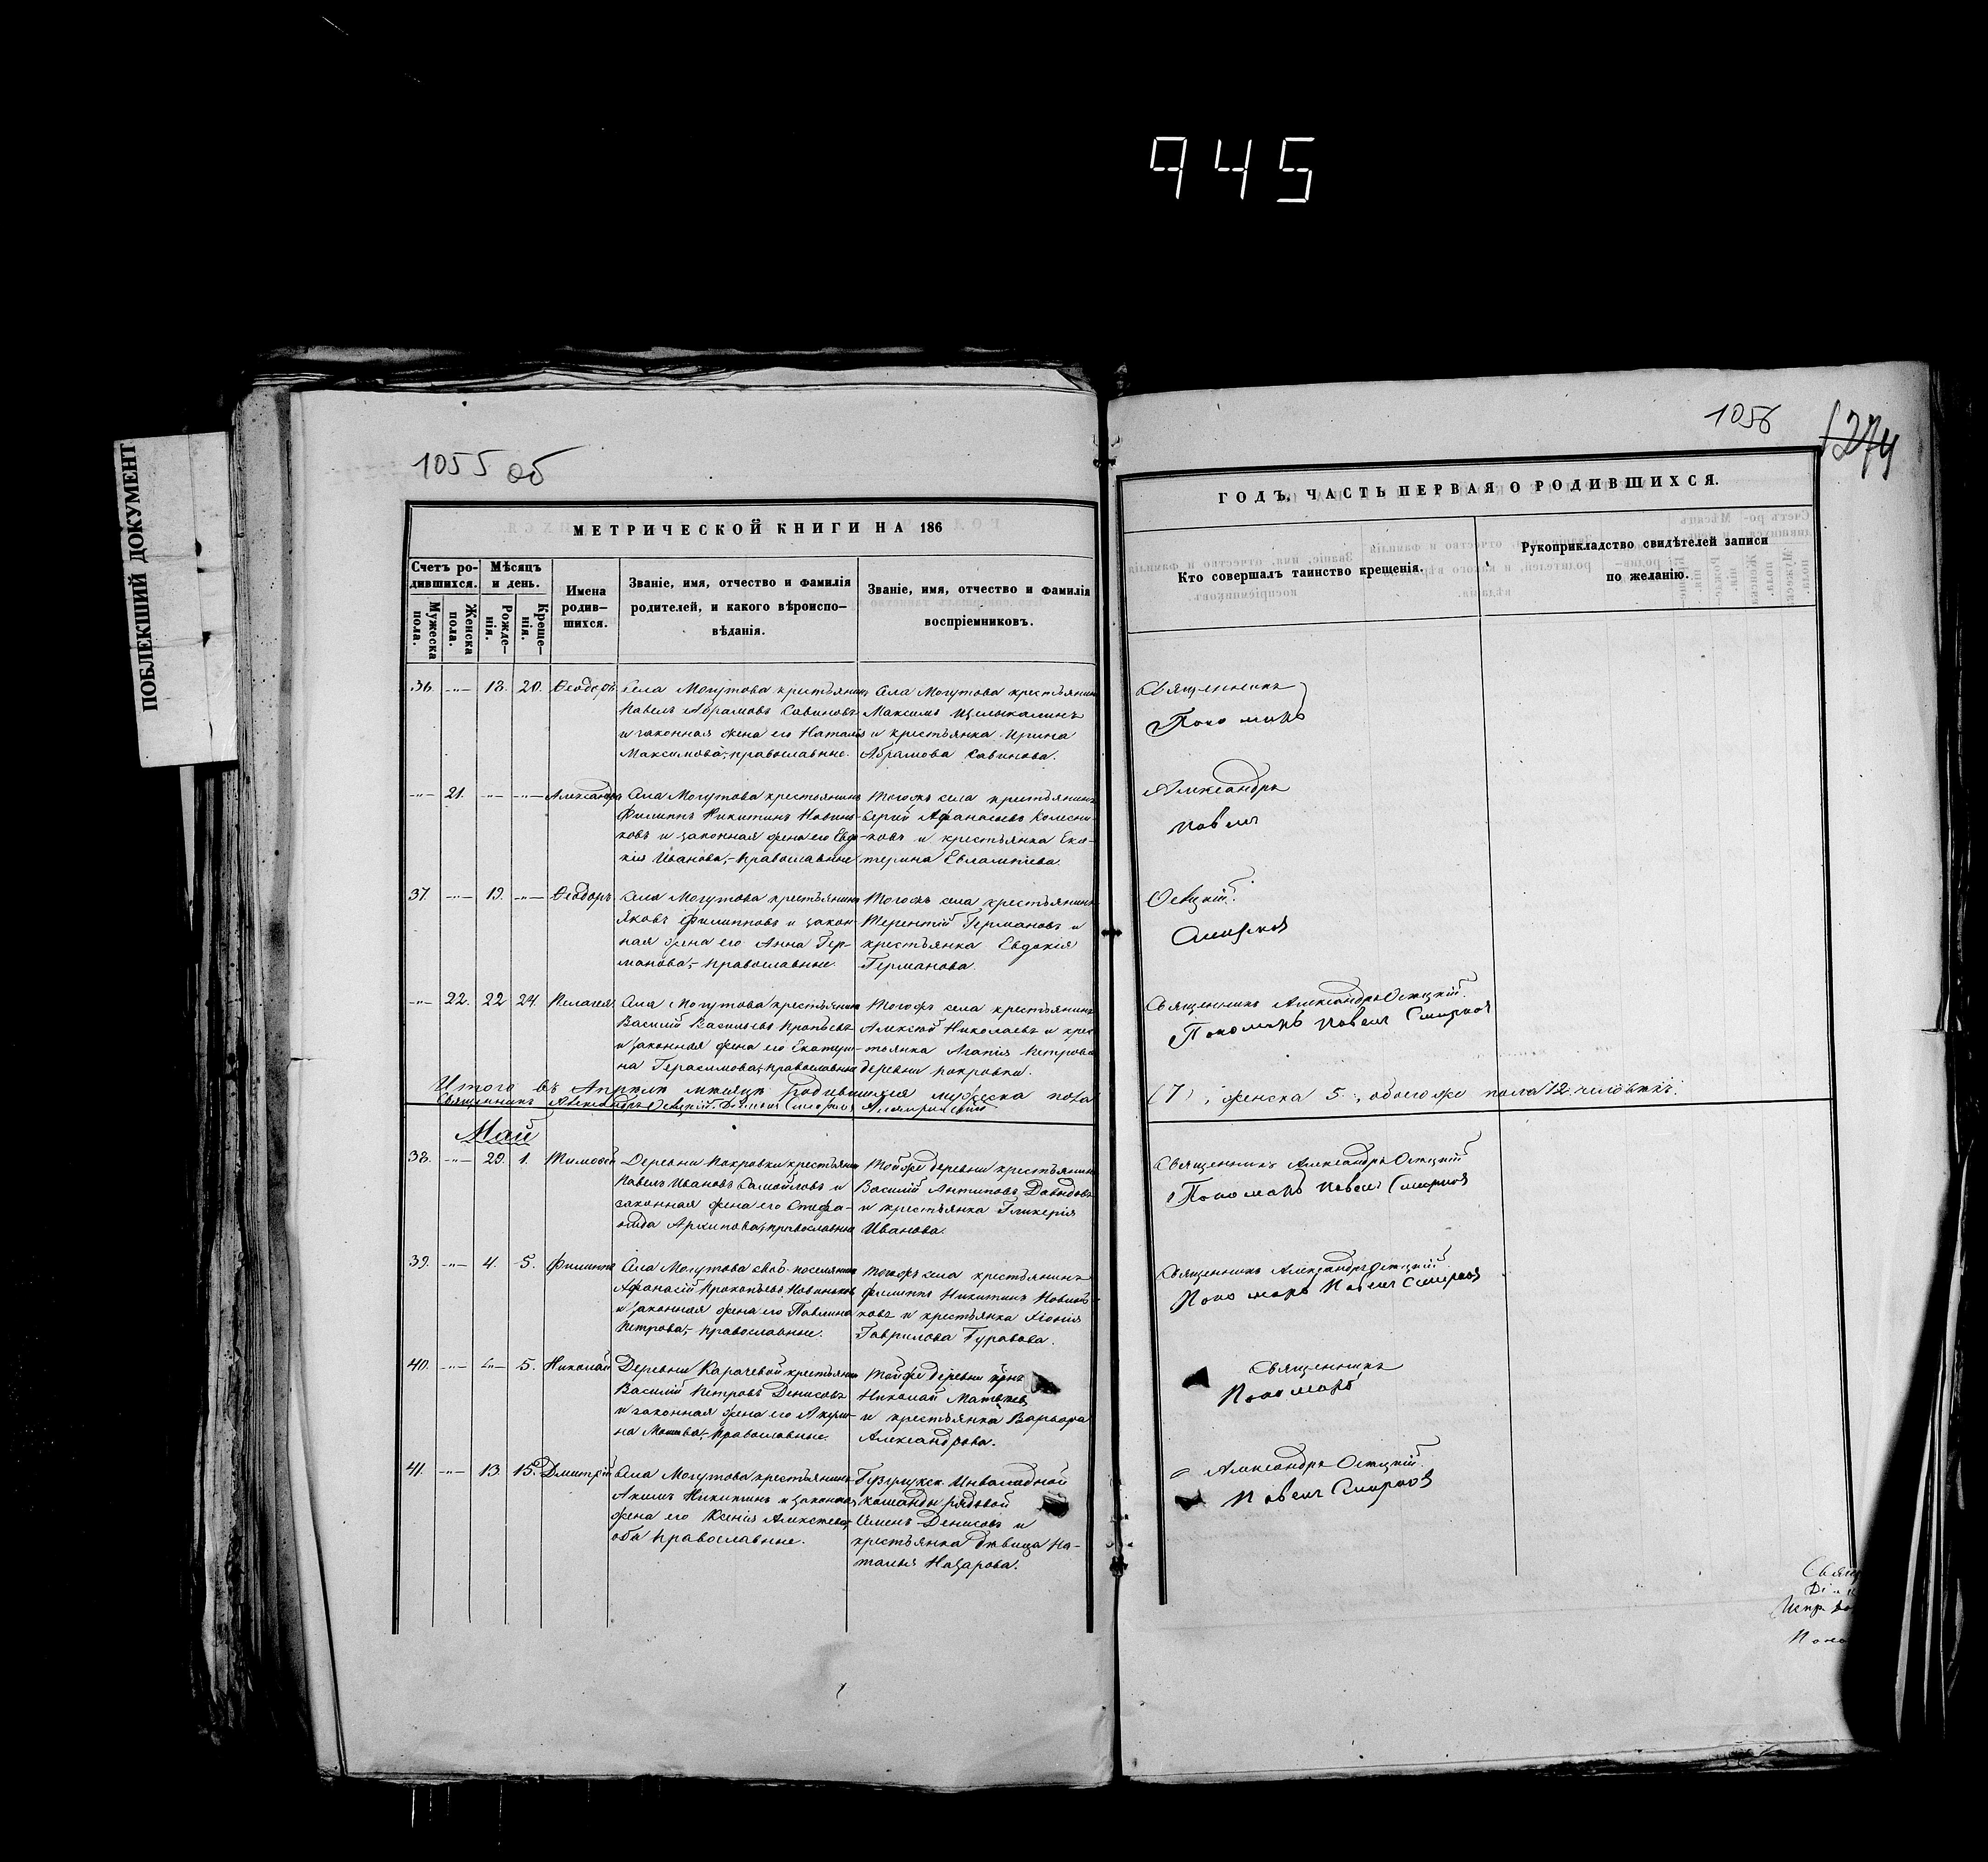 945
ПОБЛЕКШИЙ ДОКУМЕНТ
1055 об
МЕТРИЧЕСКОЙ КНИГИ НА 186
Счетъ ро-
дившихся.
Мужеска
пола.
Женска
пола.
Мѣсяцъ
и день.
Рожде-
нія.
Креще-
нія.
Имена
родив-
шихся.
Званіе, имя, отчество и фамилія
родителей, и какого вѣроиспо-
вѣданія.
Званіе, имя, отчество и фамилія
воспріемниковъ.
36. -"- 18. 20. Ѳеодоръ
Села Могутова крестьянинъ
Павелъ Абрамовъ Савиновъ
и законная жена его Наталія
Максимова, православные.
Села Могутова крестьянинъ
Максимъ
и крестьянка Ирина
Абрамова Савинова.
-"- 21. -"- -"- Александра
Села Могутова крестьянинъ
Филиппъ Никитинъ Новинь-
ковъ и законная жена его Евдо-
кія Иванова, православные
Тогожъ села крестьянинъ
Сергій Афанасьевъ Колесни-
ковъ и крестьянка Ека-
терина Евлампіева.
37. -"- 19. -"- Ѳеодоръ
Села Могутова крестьянинъ
Яковъ Филипповъ и закон-
ная жена его Анна Гер-
манова, православные.
Тогожъ села крестьянинъ
Терентій Германовъ и
крестьянка Евдокія
Германова.
-"- 22. 22 24. Пелагея
Села Могутова крестьянинъ
Василій Васильевъ
и законная жена его Екатери-
на Герасимова, православные
Тогожъ села крестьянинъ
Алексѣй Николаевъ и крес-
тьянка Агапія Петрова
деревни Покровки.
Итого въ Апрѣлѣ мѣсяцѣ родившихся мужеска пола
Священникъ Александръ Осецкій.
Май
38. -"- 29. 1. Тимоѳей
Деревни Покровки крестьянинъ
Павелъ Ивановъ Самойловъ и
законная жена его Степа-
нида Архипова, православные
Тойже деревни крестьянинъ
Василій Антиповъ Давыдовъ
и крестьянка Гликерія
Иванова.
39. -"- 4. 5. Филиппъ
Села Могутова своб. поселянинъ
Афанасій Прокопьевъ Новиньковъ
и законная жена его Павлина
Петрова, православные.
Тогожъ села крестьянинъ
Филиппъ Никитинъ Новинь-
ковъ и крестьянка Хіонія
Гаврилова Буравова.
40. -"- -"- 5. Николай
Деревни Карачевой крестьянинъ
Василій Петровъ Денисовъ
и законная жена его Акули-
на православные.
Тойже деревни крнъ
Николай Матвѣев
и крестьянка Варвара
Александрова.
41. -"- 13. 15. Дмитрій
Села Могутова крестьянинъ
Акимъ Никитинъ и законная
жена его Ксенія Алексѣева,
оба православные.
Бузулукск. Инвалидной
команды рядовой
Семенъ Денисовъ и
крестьянка дѣвица На-
талья Назарова.
1056
1274
ГОДЪ, ЧАСТЬ ПЕРВАЯ О РОДИВШИХСЯ.
Кто совершалъ таинство крещенія.
Рукоприкладство свидѣтелей записи
по желанію.
Священникъ
Пономарь
Александръ
Павелъ
Осецкій.
Смирнов
Священникъ Александръ Осецкій.
Пономарь Павелъ Смирнов
(7), женска 5., обоегоже пола 12 человѣкъ.
Священникъ Александръ Осецкій
Пономарь Павелъ Смирнов
Священникъ Александръ Осецкій.
Пономарь Павелъ Смирнов
Священникъ
Пономарь
Александръ Осецкій.
Павелъ Смирнов